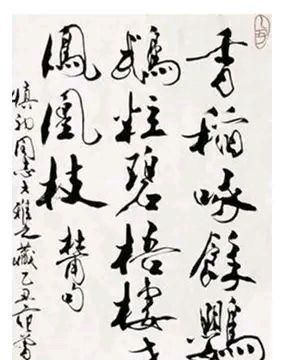 香稻啄餘鸚
鵡粒碧梧棲老
鳳凰枝 杜甫句
同志大雅之藏乙丑范曾